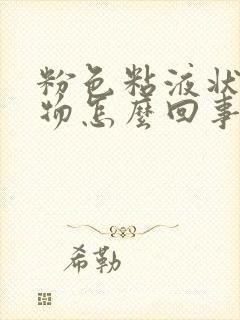 粉色粘液状
物怎麼回事
希勒